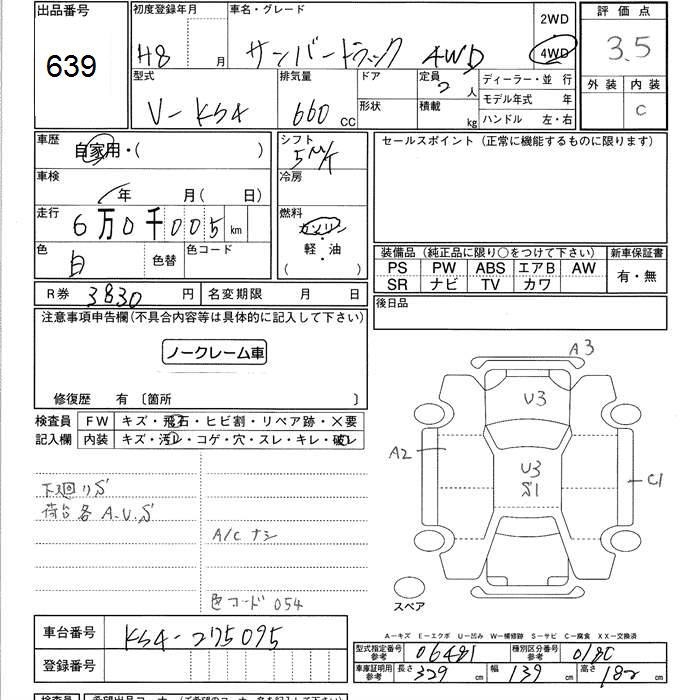 出品番号 639
初度登録年月 H8 月
車名・グレード サンバートラック 4WD
2WD
4WD
評価点 3.5
外装 内装 C
型式 V-KS4
排気量 660 cc
ドア
形状
定員 2 人
積載 kg
ディーラー・並 行
モデル年式 年
ハンドル 左・右
車歴 自家用・( )
車検 年 月( 日)
走行 6万0千005 km
色 白 色替 色コード
シフト 5M/T
冷房
燃料 ガソリン・軽油
( )
セールスポイント(正常に機能するものに限ります)
装備品(純正品に限り○をつけて下さい)
PS PW ABS エアB AW
SR ナビ TV カワ
新車保証書 有・無
R券 3830 円 名変期限 月 日
後日品
注意事項申告欄(不具合内容等は具体的に記入して下さい)
ノークレーム車
修復歴 有 〔箇所 〕
検査員記入欄
FW キズ・飛石・ヒビ割・リペア跡・×要
内装 キズ・汚レ・コゲ・穴・スレ・キレ・破レ
下廻りS
荷台各A.U.S
A/Cナシ
色コード 054
A3
U3
A2
U3
S1
C1
スペア
A-キズ E-エクボ U-凹み W-補修跡 S-サビ C-腐食 XX-交換済
車台番号 KS4-275095
登録番号
型式指定番号参考 06481
種別区分番号参考 0180
車庫証明用参考 長さ 329 cm 幅 139 cm 高さ 182 cm